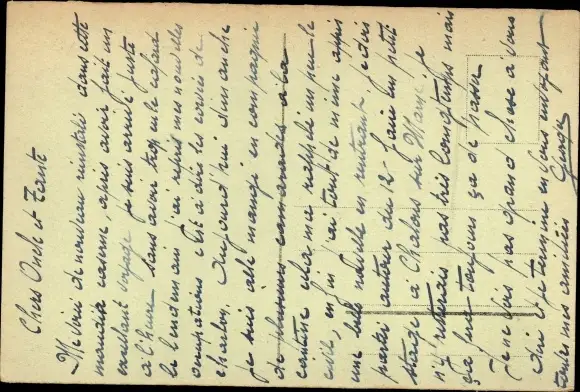 Chers Oncle et Tante
Me voici de nouveau réinstallé dans cette
maudite caserne, après avoir fait un
excellent voyage je suis arrivé juste
à l'heure sans avoir trop eu le cafard
le lendemain j'ai repris mes nouvelles
occupations c'est à dire les corvées de
charbon. Aujourd'hui dimanche
je suis allé mangé en compagnie
de plusieurs camarades à la
cantine cela me rappelle un peu le
civil, enfin j'ai tout de même appris
une belle nouvelle en rentrant, je dois
partir autour du 12 faire un petit
stage à Chalons sur Marne, je
n'y resterais pas très longtemps mais
ça fera toujours ça de passé.
Je ne vois pas grand chose à vous
dire et je termine en vous envoyant
toutes mes amitiés
Georges